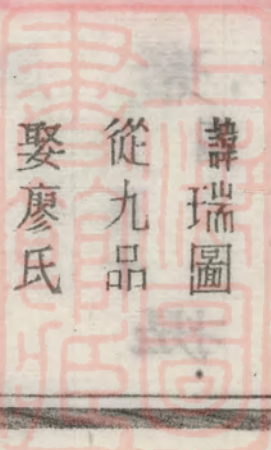 諱瑞圖
從九品
娶廖氏